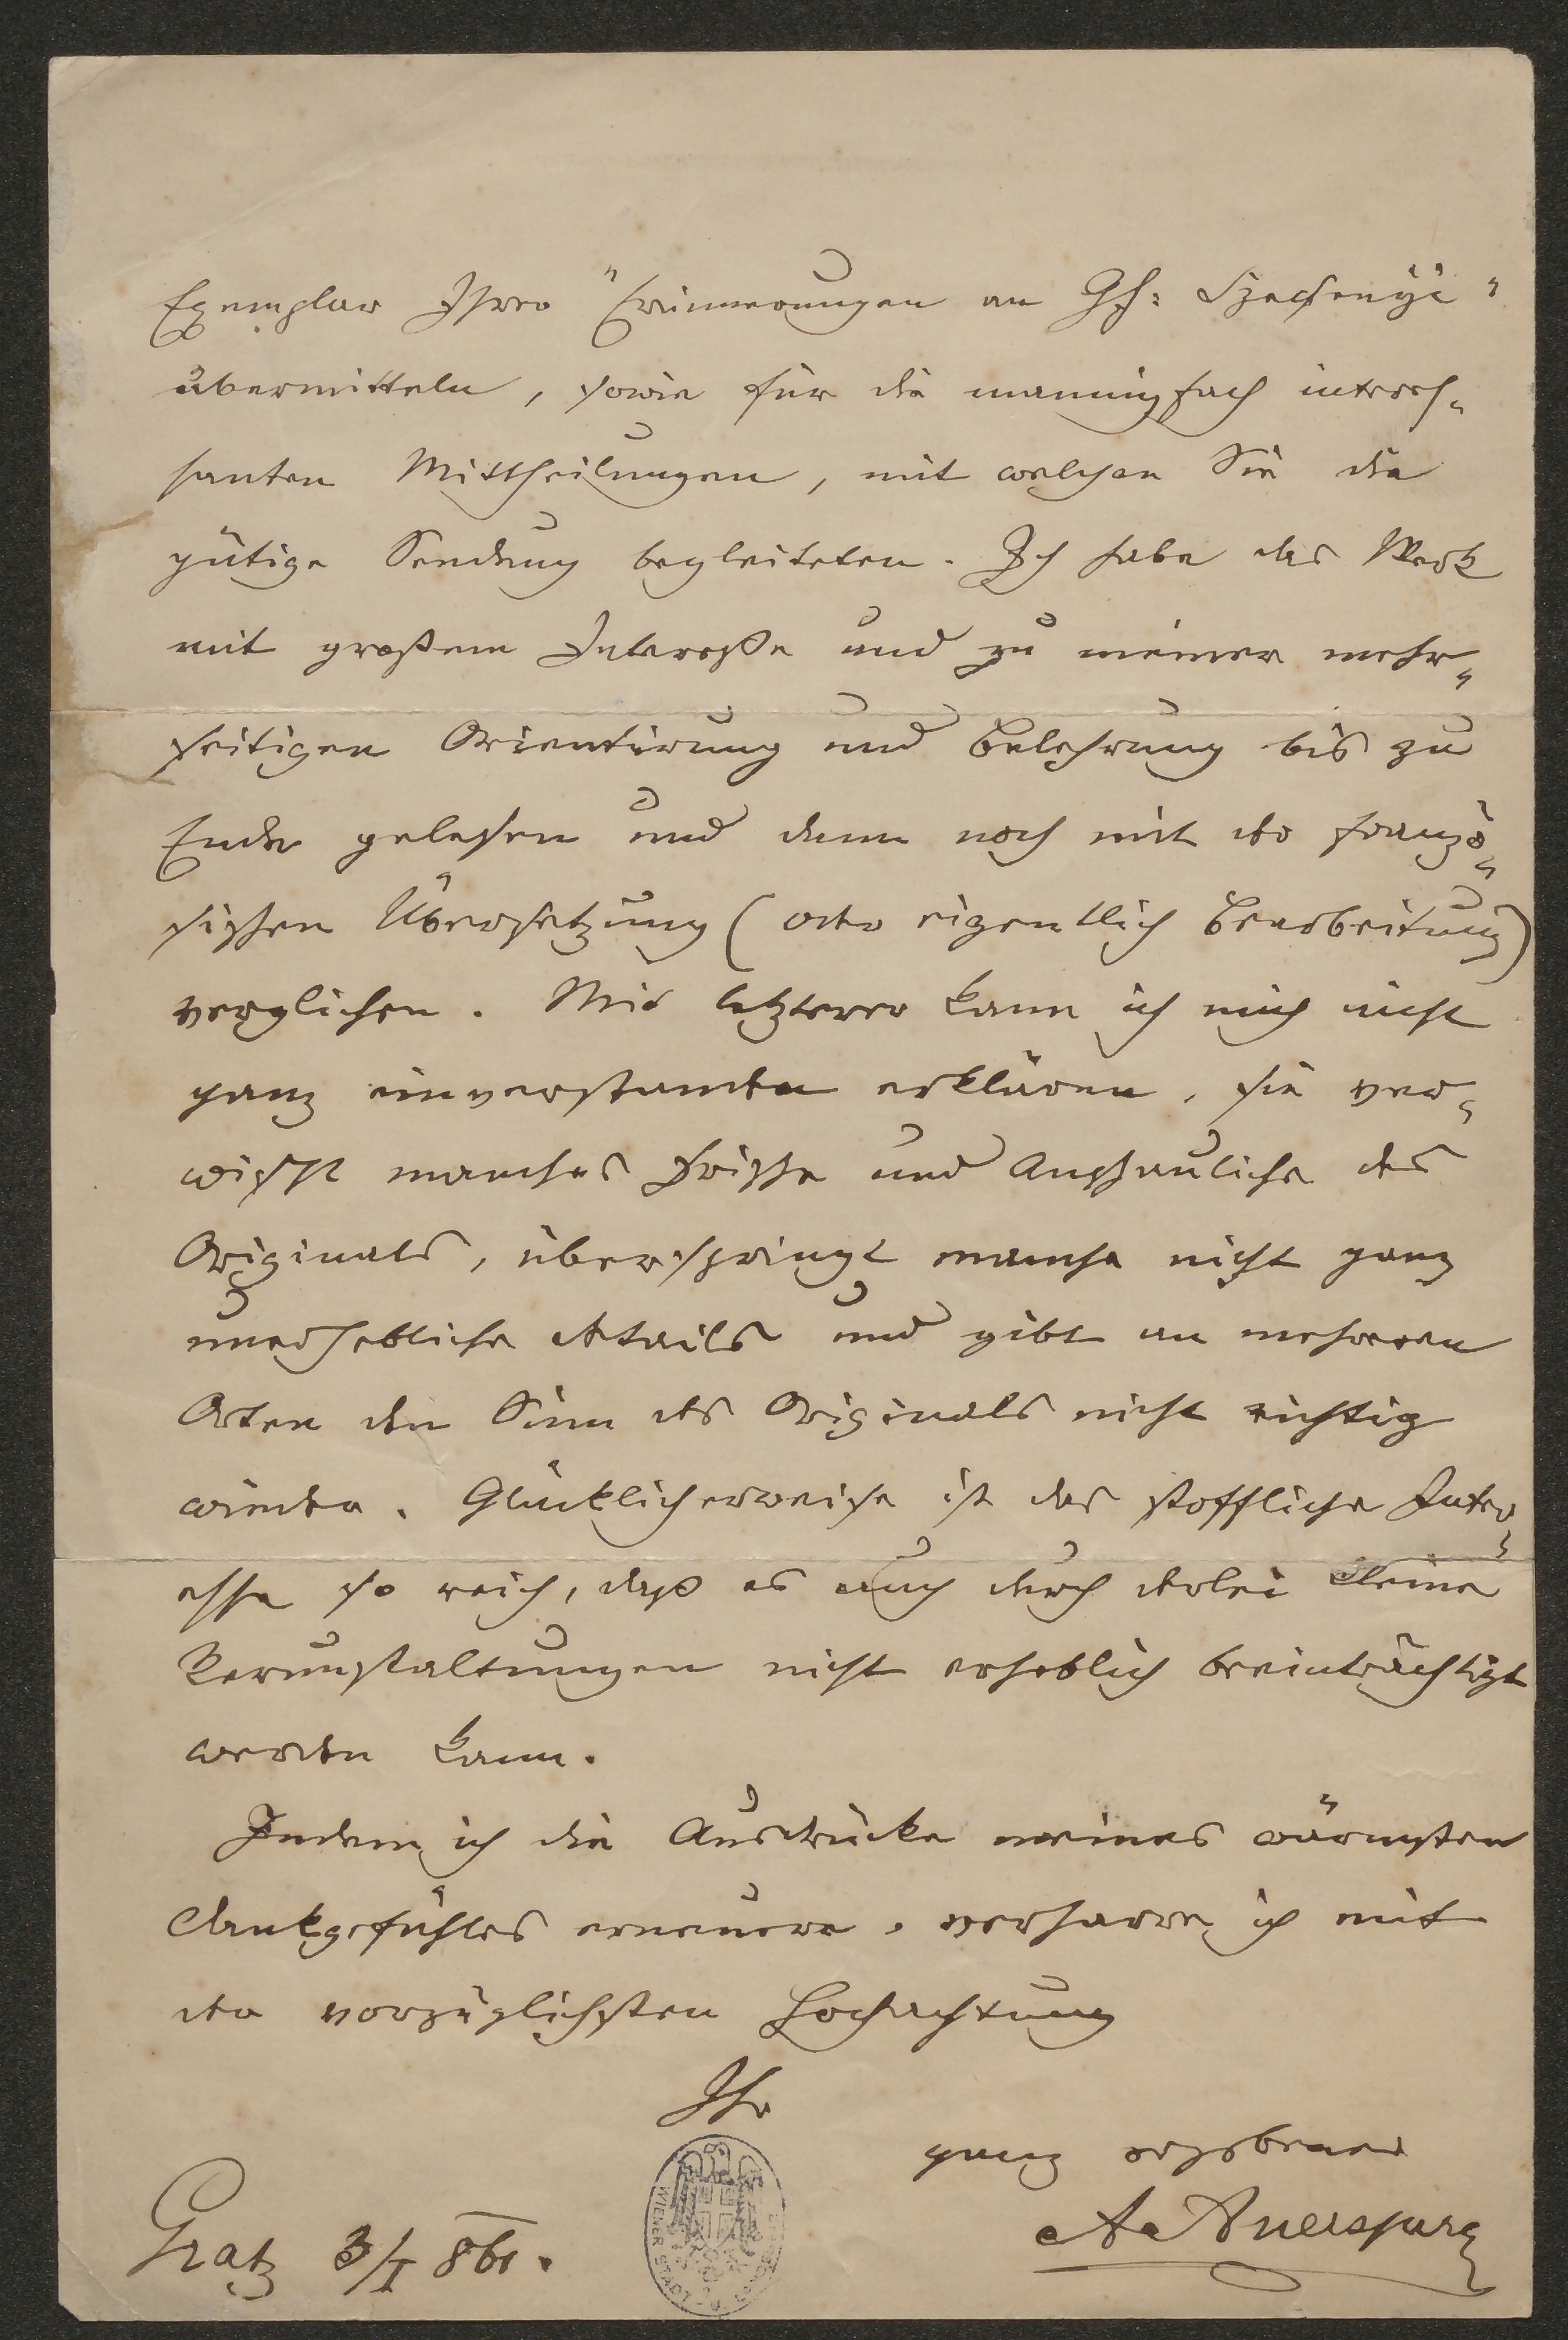 Exemplar Ihrer "Erinnerungen an Gf: Szechenÿi"
übermitteln, sowie für die mannigfach interes-
santen Mittheilungen, mit welchen Sie die
gütige Sendung begleiteten. Ich habe das Werk
mit großem Interesse und zu meiner mehr-
seitigen Orientirung und Belehrung bis zu
Ende gelesen und dann noch mit der franzö-
sischen Übersetzung (oder eigentlich Bearbeitung)
verglichen. Mit letzterer kann ich mich nicht
ganz einverstanden erklären, sie ver-
wischt manches Frische und Anschauliche des
Originals, überspringt manche nicht ganz
unerhebliche Details und gibt an mehreren
Orten den Sinn des Originals nicht richtig
wieder. Glücklicherweise ist das stoffliche Inter-
esse so reich, daß es auch durch derlei kleine
Verunstaltungen nicht erheblich beeinträchtigt
werden kann.
Indem ich die Ausdrücke meines wärmsten
Dankgefühles erneuere, verharre ich mit
der vorzüglichsten Hochachtung
Ihr
ganz ergebener
Gratz 3/I 861.
AAuersperg
WIENER STADT